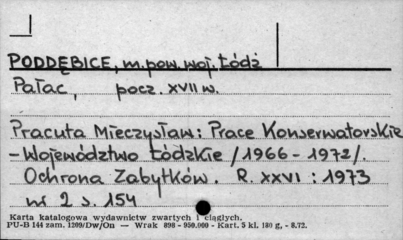 PODDĘBICE, m.pow.woj.Łódź
Pałac, pocz. XVII w.
Pracuta Mieczysław: Prace Konserwatorskie
- Województwo Łódzkie /1966-1972/.
Ochrona Zabytków. R. XXVI : 1973
nr 2 s. 154
Karta katalogowa wydawnictw zwartych i ciągłych.
PU-B 144 zam. 1209/Dw/On — Wrak 898 - 950.000 - Kart. 5 kl. 180 g, - 8.72.